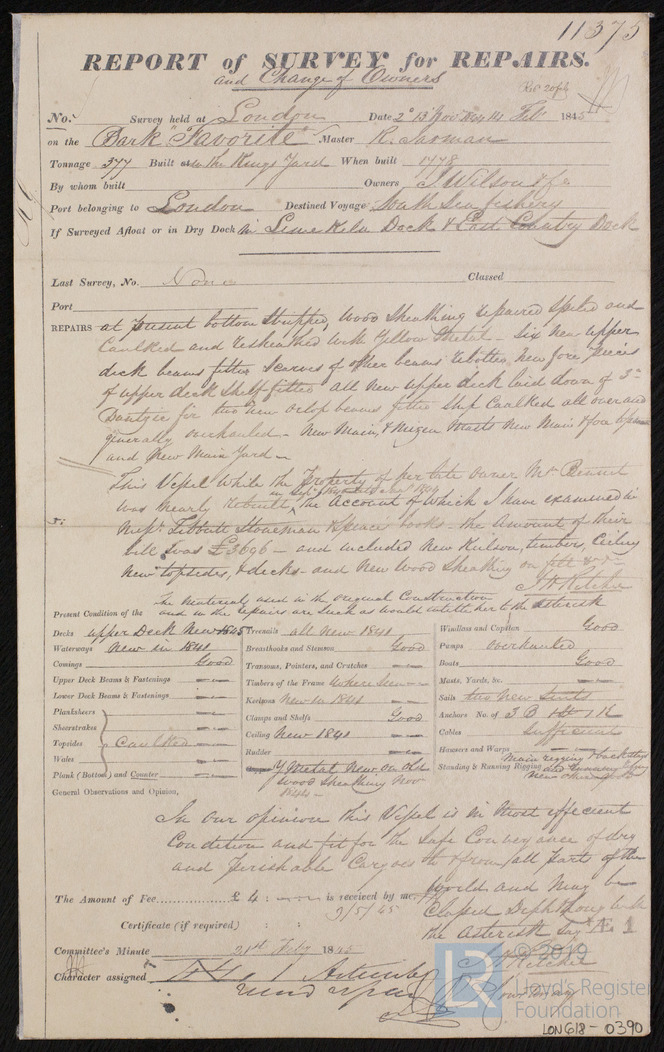 11375
REPORT of SURVEY for REPAIRS.
and Change of Owners
No. Survey held at London Date 2d 13 Nov 1844 14 Feb 1845
on the Bark "Favorite" Master R. Jarman
Tonnage 377 Built at in the Kings Yard When built 1778
By whom built Owners J Wilson & Co
Port belonging to London Destined Voyage South Sea fishery
If Surveyed Afloat or in Dry Dock in Limekiln Dock & East Country Dock
Last Survey, No. None Classed
Port
REPAIRS at present bottom Stripped, Wood Sheathing repaired Spiled and
Caulked and resheathed with Yellow Metal - Six new upper
deck beams fitted Scarves of other beams rebolted, new fore pieces
of upper deck Shelf fitted all New upper deck laid down of 3 in
Dantzic fir two new orlop beams fitted Ship Caulked all over and
generally overhauled - New Main, & Mizen Masts New Main & fore topmast
and New Main Yard -
This Vessel while the Property of her late Owner Mr Bennett
was nearly rebuilt, The Account of which I have examined in
Messrs Tibbutt Stoneman & Spence books - the amount of their
bill was £3696 - and included New Keelson, timbers, Ceiling
New topsides, & decks - and New Wood Sheathing on felt &c &c
The Materials used in the Original Construction
and in the repairs are such as would entitle her to the Asterisk
Present Condition of the
Decks upper Deck New 1845
Waterways New in 1841
Comings Good
Upper Deck Beams & Fastenings
Lower Deck Beams & Fastenings
Planksheers
Sheerstrakes
Topsides Caulked
Wales
Plank (Bottom) and Counter
General Observations and Opinion,
Treenails all New 1841
Breasthooks and Stemson Good
Transoms, Pointers, and Crutches
Timbers of the Frame where Seen
Keelsons New in 1841
Clamps and Shelfs Good
Ceiling New 1841
Rudder
Y Metal New on Old
Wood Sheathing Nov
1844 -
Windlass and Capstan Good
Pumps overhauled
Boats Good
Masts, Yards, &c.
Sails two New Suits
Anchors No. of 3 B 1 St 1 K
Cables Sufficient
Hausers and Warps
Standing & Running Rigging Main rigging & backstays
In our opinion this Vessel is in Most efficient
Condition and fit for the Safe Conveyance of dry
and Perishable Cargoes to & from all parts of the
World and May be
Classed Diphthong with
the Asterisk
The Amount of Fee £ 4 : is received by me,
9/5/45
Certificate (if required) : :
Committee's Minute 21st Feby 1845
Character assigned
© 2019
LR
Lloyd's Register
Foundation
LON618-0390